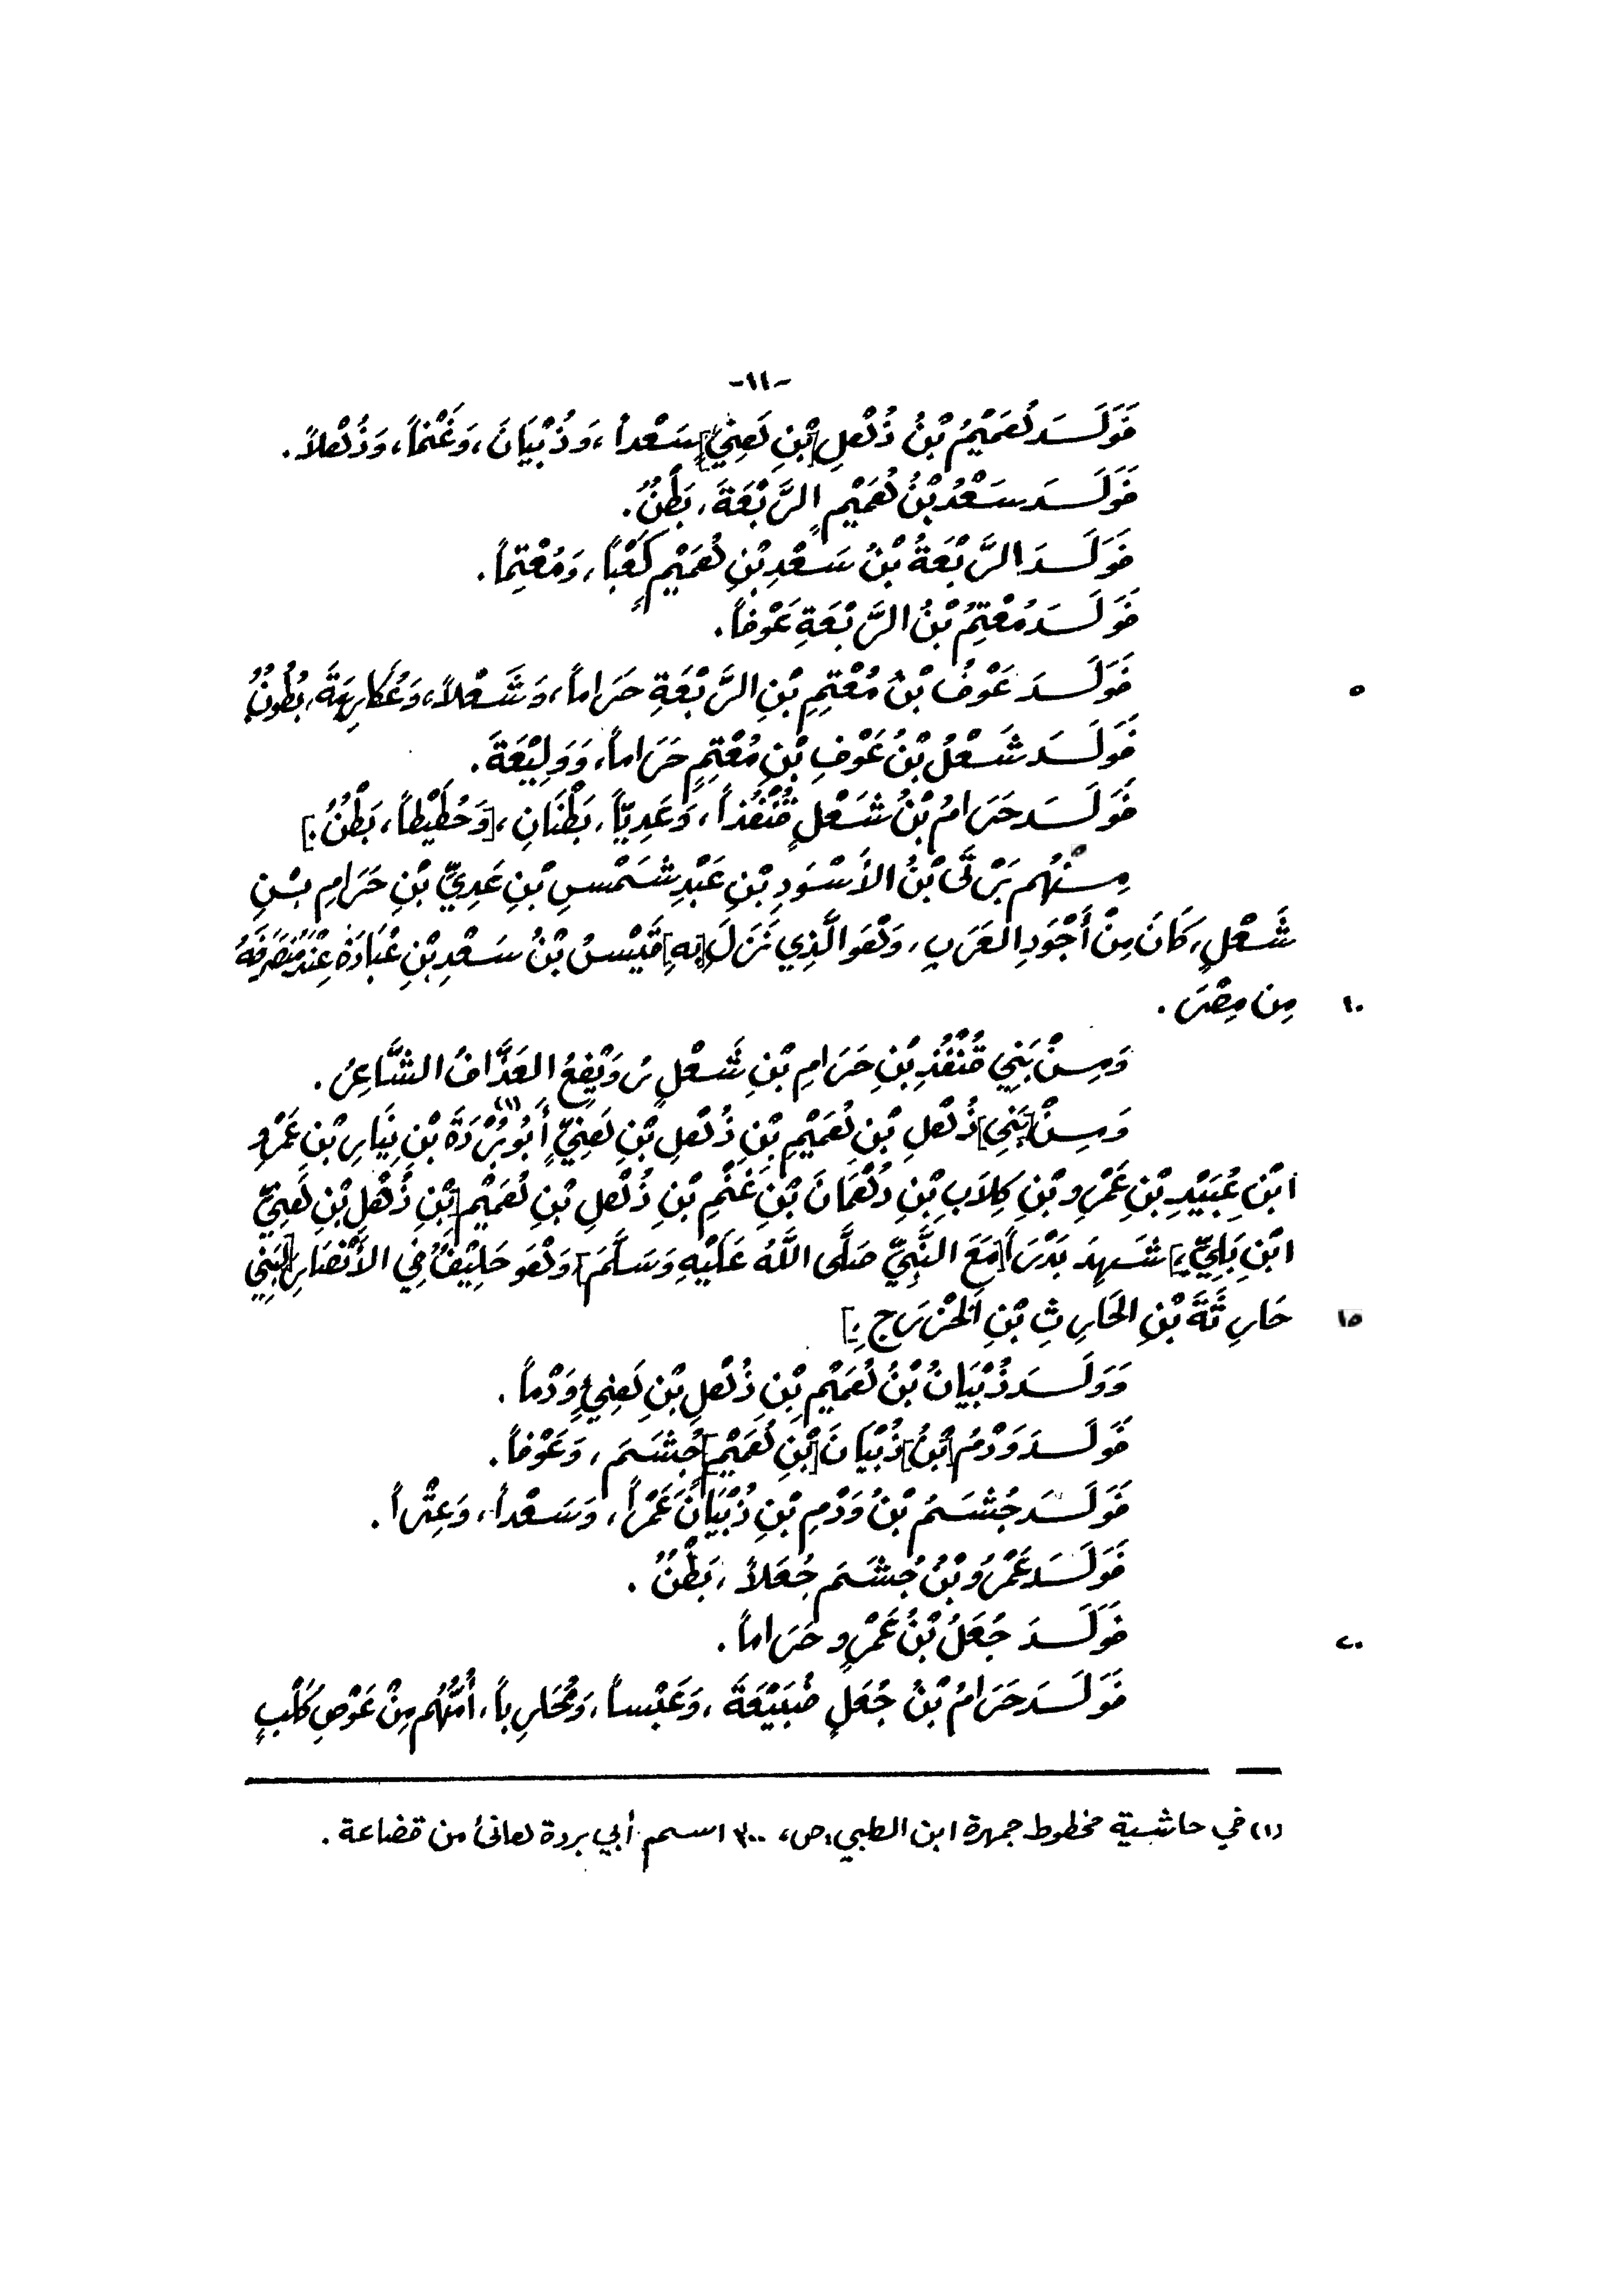 -١١-
فَوَلَدَ هُمَيْمُ بْنُ ذُهْلِ [بْنِ هَنِيٍّ] سَعْداً، وَذُبْيَانَ، وَغَنْماً، وَذُهْلاً.
فَوَلَدَ سَعْدُ بْنُ هُمَيْمٍ الرَّبْعَةَ، بَطْنٌ.
فَوَلَدَ الرَّبْعَةُ بْنُ سَعْدِ بْنِ هُمَيْمٍ كَعْباً، وَمُعْتِماً.
فَوَلَدَ مُعْتِمُ بْنُ الرَّبْعَةِ عَوْفاً.
٥ فَوَلَدَ عَوْفُ بْنُ مُعْتِمِ بْنِ الرَّبْعَةِ حَرَاماً، وَشَعْلاً، وَعُكَارِمَةَ، بُطُونٌ.
فَوَلَدَ شَعْلُ بْنُ عَوْفِ بْنِ مُعْتِمٍ حَرَاماً، وَوَلِيْعَةَ.
فَوَلَدَ حَرَامُ بْنُ شَعْلٍ قُنْفُذاً، وَعَدِيّاً، بَطْنَانِ، [وَحُطَيْطاً، بَطْنٌ.]
مِنْهُم بْنُ الأَسْوَدِ بْنِ عَبْدِ شَمْسِ بْنِ عَدِيِّ بْنِ حَرَامِ بْنِ
شَعْلٍ، كَانَ مِنْ أَجْوَدِ العَرَبِ، وَهُوَ الَّذِي نَزَلَ [بِهِ] قَيْسُ بْنُ سَعْدِ بْنِ عُبَادَةَ عِنْدَ مُنْصَرَفِهِ
١٠ مِن مِصْرَ.
وَمِنْ بَنِي قُنْفُذِ بْنِ حَرَامِ بْنِ شَعْلٍ رُوَيْفِعُ العَذَّافُ الشَّاعِرُ.
وَمِنْ [بَنِي] ذُهْلِ بْنِ هُمَيْمِ بْنِ ذُهْلِ بْنِ هَنِيٍّ أَبُو بُرْدَةَ(١) بْنِ نِيَارِ بْنِ عَمْرِو
ابْنِ عُبَيْدِ بْنِ عَمْرِو بْنِ كِلَابِ بْنِ دُهْمَانَ بْنِ غَنْمِ بْنِ ذُهْلِ بْنِ هُمَيْمِ [بْنِ ذُهْلِ بْنِ هَنِيِّ
ابْنِ بَلِيٍّ،] شَهِدَ بَدْرَاً [مَعَ النَّبِيِّ صَلَّى اللَّهُ عَلَيْهِ وَسَلَّمَ] وَهُوَ حَلِيْفٌ فِي الأَنْصَارِ [لِبَنِي
١٥ حَارِثَةَ بْنِ الحَارِثِ بْنِ الخَزْرَجِ.]
وَوَلَدَ ذُبْيَانُ بْنُ هُمَيْمِ بْنِ ذُهْلِ بْنِ هَنِيٍّ وَدْماً.
فَوَلَدَ وَدْمُ [بْنُ] ذُبْيَانَ [بْنِ هُمَيْمٍ] جُشَمَ، وَعَوْفاً.
فَوَلَدَ جُشَمُ بْنُ وَدْمِ بْنِ ذُبْيَانَ عَمْراً، وَسَعْداً، وَعِتْراً.
فَوَلَدَ عَمْرُو بْنُ جُشَمَ جُعَلاً، بَطْنٌ.
٢٠ فَوَلَدَ جُعَلُ بْنُ عَمْرٍو حَرَاماً.
فَوَلَدَ حَرَامُ بْنُ جُعَلٍ ضُبَيْعَةَ، وَعَبْساً، وَمُحَارِباً، أُمُّهُم مِنْ عَوْصِ كَلْبٍ
(١) في حاشية مخطوط جمهرة ابن الكلبي، ص، ٣٠٠ اسم أبي بردة هانئ من قضاعة.